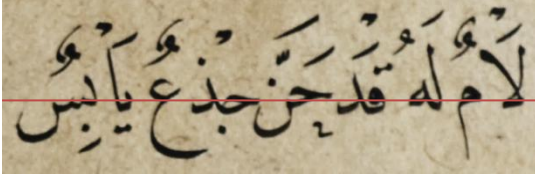 لَامٌ لَهُ قَدْ حَنَّ جِذْعٌ يَابِسٌ